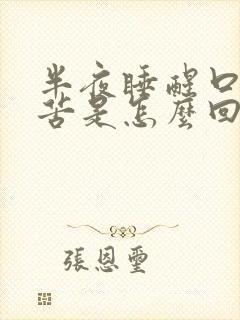 半夜睡醒口
苦是怎麼回
張恩璽